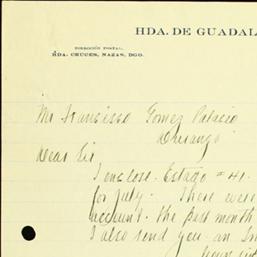 HDA. DE GUADAL
DIRECCIÓN POSTAL:
HDA. CRUCES, NAZAS, DGO.
Mr Francisco Gomez Palacio
Durango
Dear Sir
I enclose Estado #41.
for July. There were
account. the past month
I also send you an In